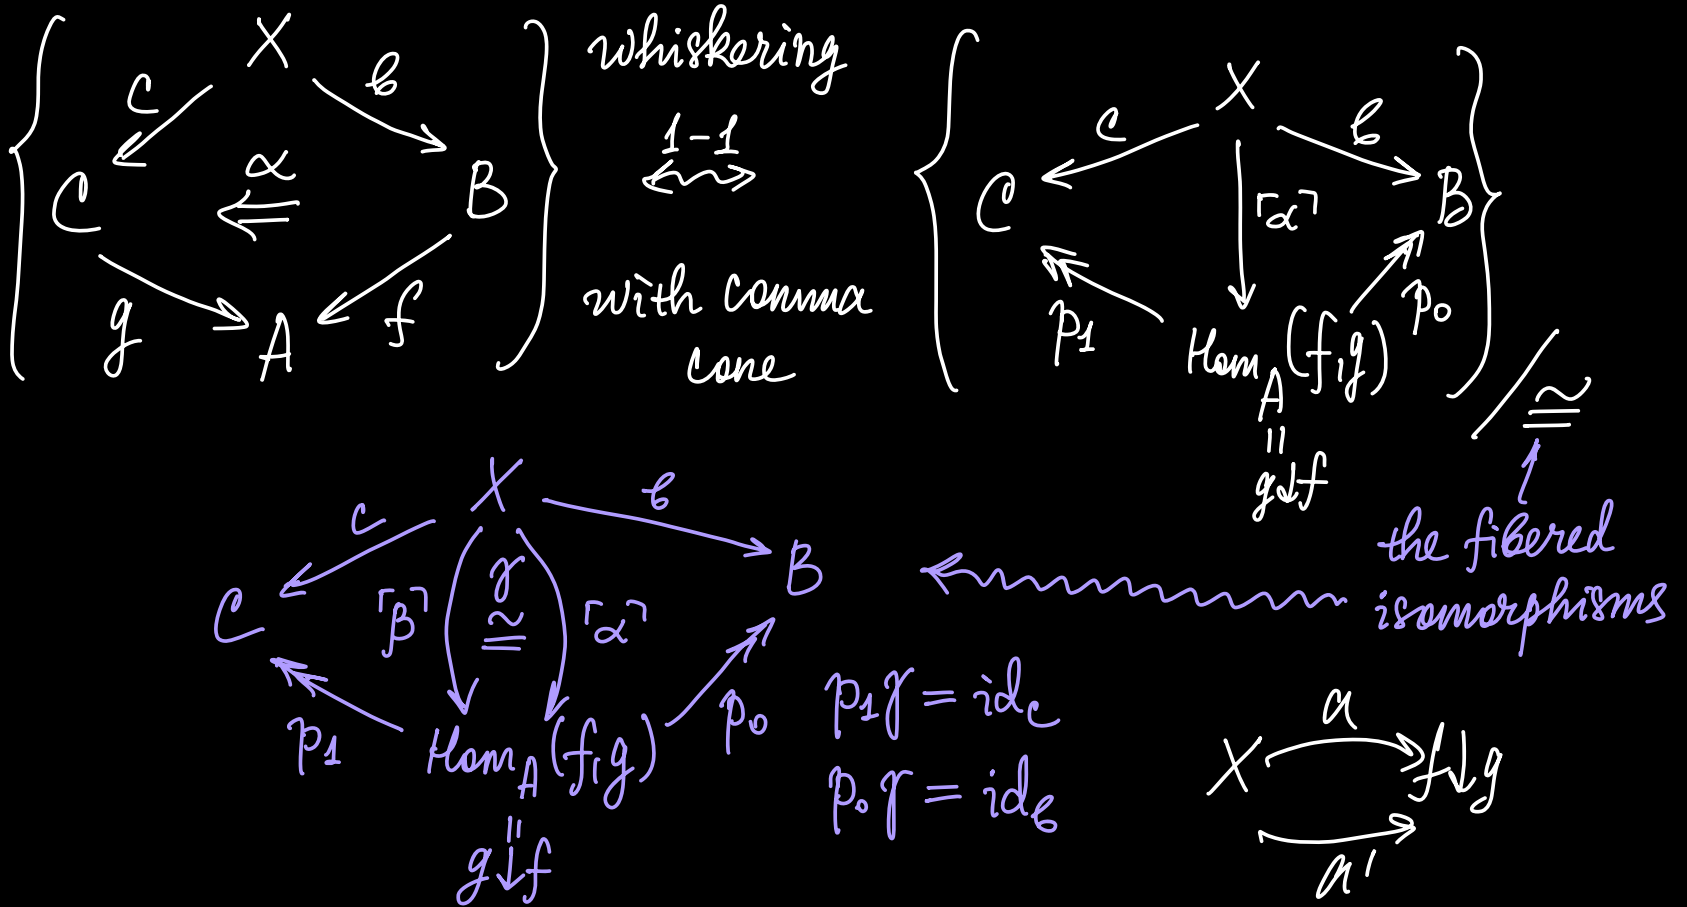 X
c
b
C
α
B
g
A
f
whiskering
1-1
with comma
cone
X
c
b
C
⌜α⌝
B
p₁
p₀
Hom_A(f,g)
=
g↓f
/≅
the fibered
isomorphisms
X
c
b
C
⌜β⌝
γ
≅
⌜α⌝
B
p₁
p₀
Hom_A(f,g)
=
g↓f
p₁γ = id_c
p₀γ = id_b
a
X
f↓g
a'